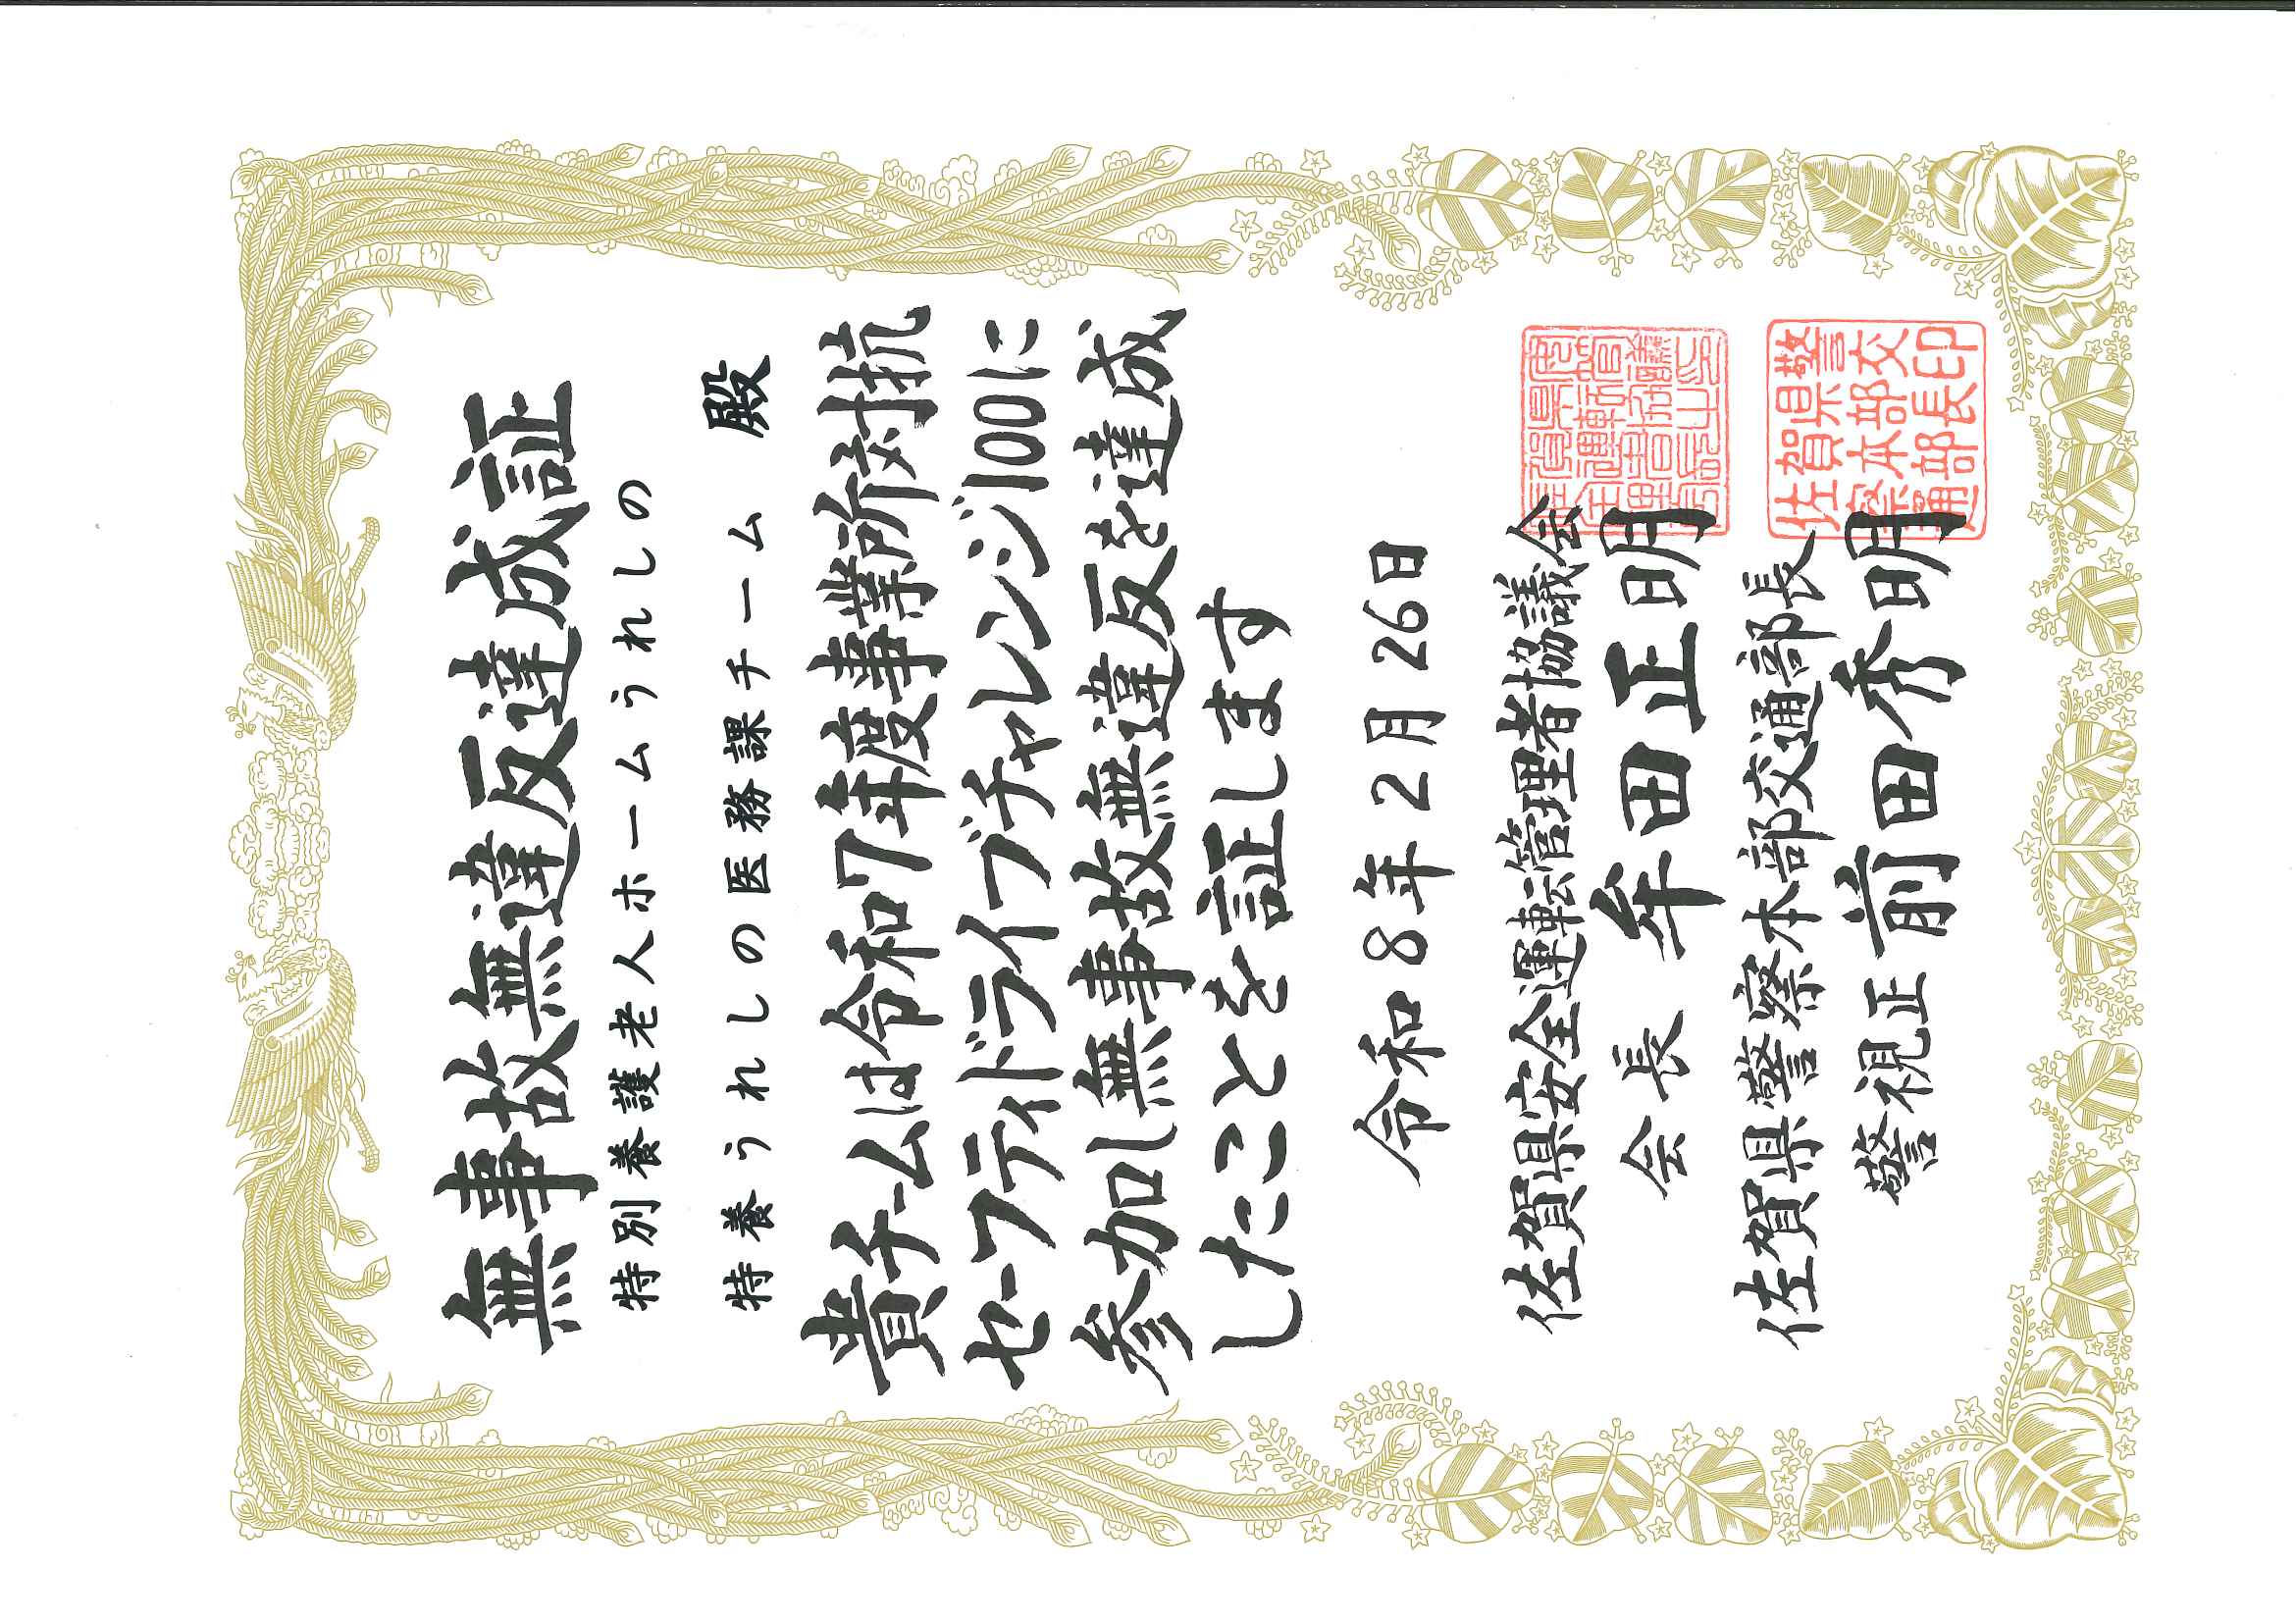 無事故無違反達成証
特別養護老人ホームうれしの
特養うれしの医務課チーム 殿
貴チームは令和7年度事業所対抗
セーフティドライブチャレンジ100に
参加し無事故無違反を達成
したことを証します
令和8年2月26日
佐賀県安全運転管理者協議会
会長 牟田正明
佐賀県警察本部交通部長
警視正 前田秀明
佐賀県警
察本部交
通部長印